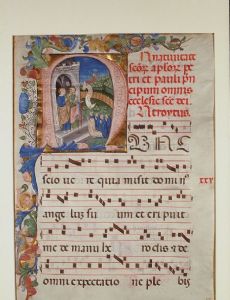 N natiuitate
scõrꝝ aplorꝝ pe
tri et pauli pn
cipum omnis
ecclesie scẽ dei.
Introytus.
Nunc
scio vere quia misit domin9
XXV
angelus suum et eripuit
me de manu herodis et de
omni expectatione plebis